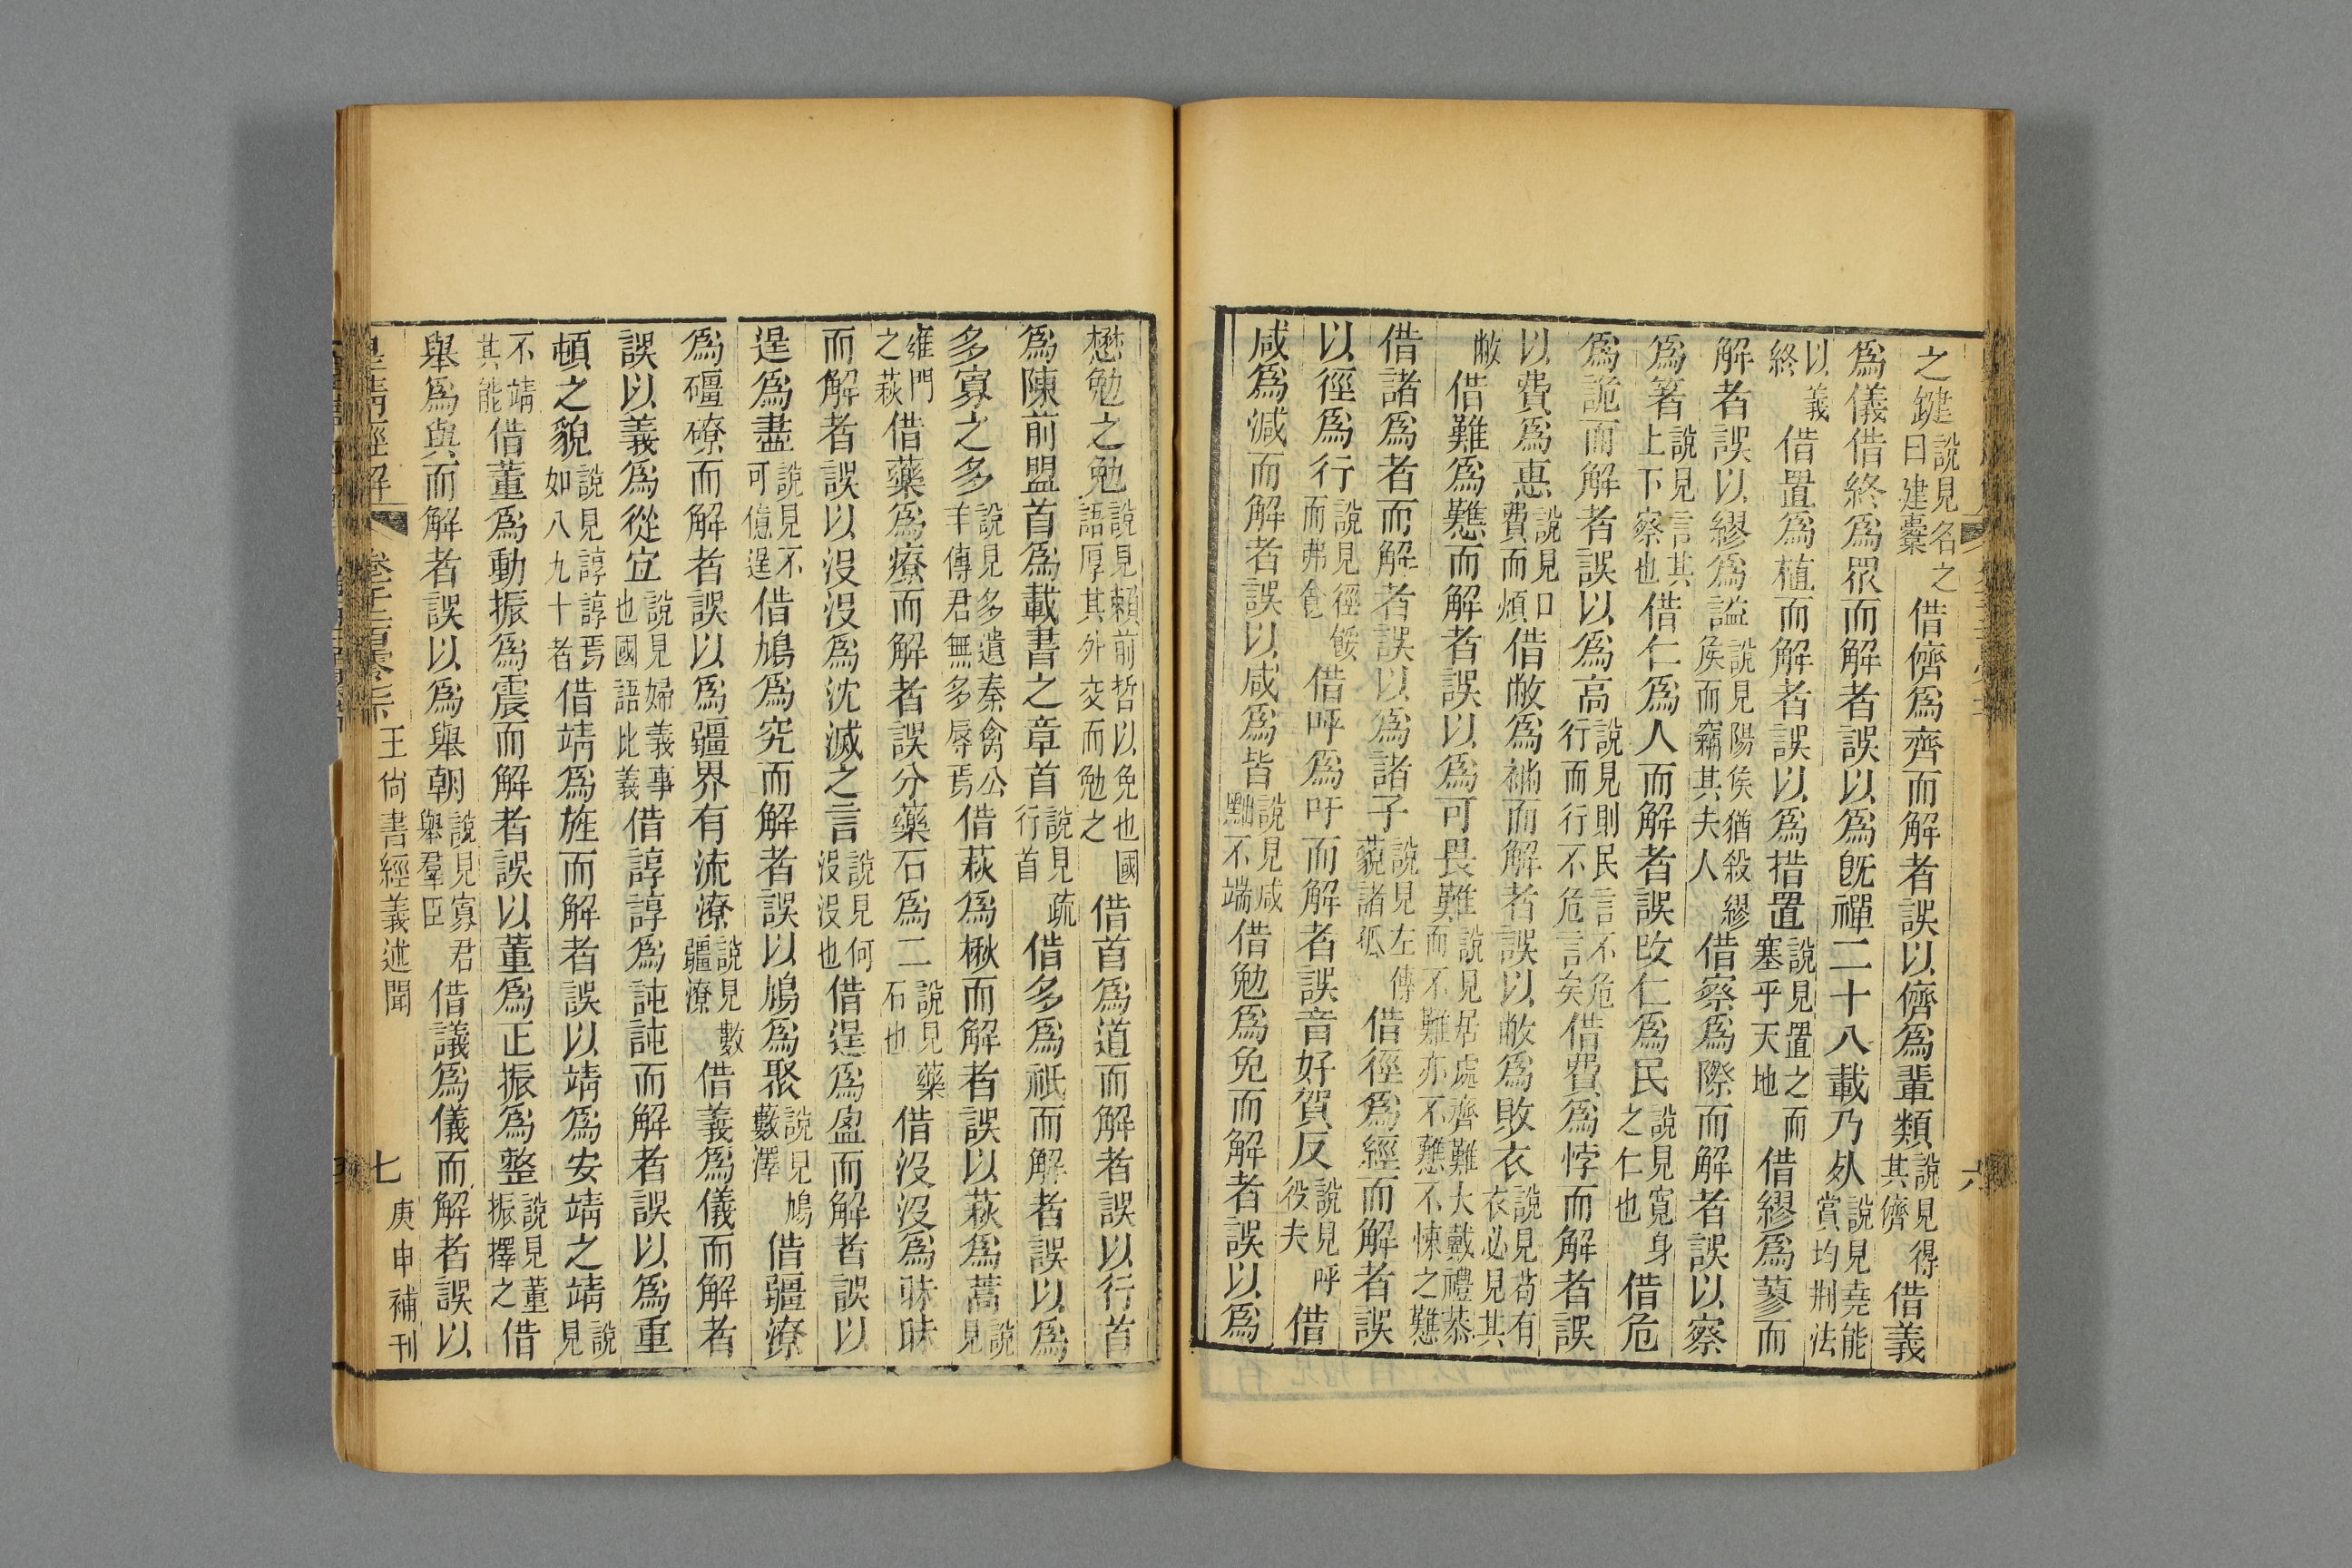 之鍵說見名之曰建櫜借儕爲齊而解者誤以儕爲輩類說見得其儕借義
爲儀借終爲眾而解者誤以爲旣禪二十八載乃𣦸說見堯能賞均荆法
以義終借置爲植而解者誤以爲措置說見置之而塞乎天地借繆爲蓼而
解者誤以繆爲謚說見陽侯猶殺繆侯而竊其夫人借察爲際而解者誤以察
爲箸說見言其上下察也借仁爲人而解者誤改仁爲民說見寬身之仁也借危
爲詭而解者誤以爲高說見則民言不危行而行不危言矣借費爲悖而解者誤
以費爲惠說見口費而煩借敝爲袡而解者誤以敝爲敗衣說見苟有衣必見其
敝借難爲戁而解者誤以爲可畏難說見居處齊難大戴禮恭而不難亦不戁不悚之戁
借諸爲者而解者誤以爲諸子說見左傳藐諸孤借徑爲經而解者誤
以徑爲行說見徑餒而弗食借呼爲吁而解者誤音好賀反說見呼役夫借
咸爲減而解者誤以咸爲皆說見咸黜不端借勉爲免而解者誤以爲
懋勉之勉說見賴前哲以免也國語厚其外交而勉之借首爲道而解者誤以行首
爲陳前盟首爲載書之章首說見疏行首借多爲祇而解者誤以爲
多寡之多說見多遺秦禽公羊傳君無多辱焉借萩爲楸而解者誤以萩爲蒿說見
雍門之萩借藥爲療而解者誤分藥石爲二說見藥石也借沒沒爲昧昧
而解者誤以沒沒爲沈滅之言說見何沒沒也借逞爲盈而解者誤以
逞爲盡說見不可億逞借鳩爲究而解者誤以鳩爲聚說見鳩藪澤借疆潦
爲礓磟而解者誤以爲疆界有流潦說見數疆潦借義爲儀而解者
誤以義爲從宜說見婦義事也國語比義借諄諄爲訰訰而解者誤以爲重
頓之貌說見諄諄焉如八九十者借靖爲旌而解者誤以靖爲安靖之靖說見
不靖其能借董爲動振爲震而解者誤以董爲正振爲整說見董振擇之借
舉爲與而解者誤以爲舉朝說見寡君舉羣臣借議爲儀而解者誤以
皇淸經解
王尙書經義述聞
七
庚申補刊